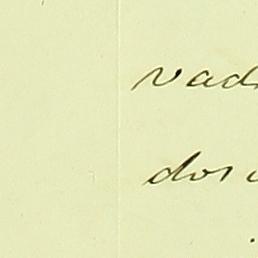 vad
dos